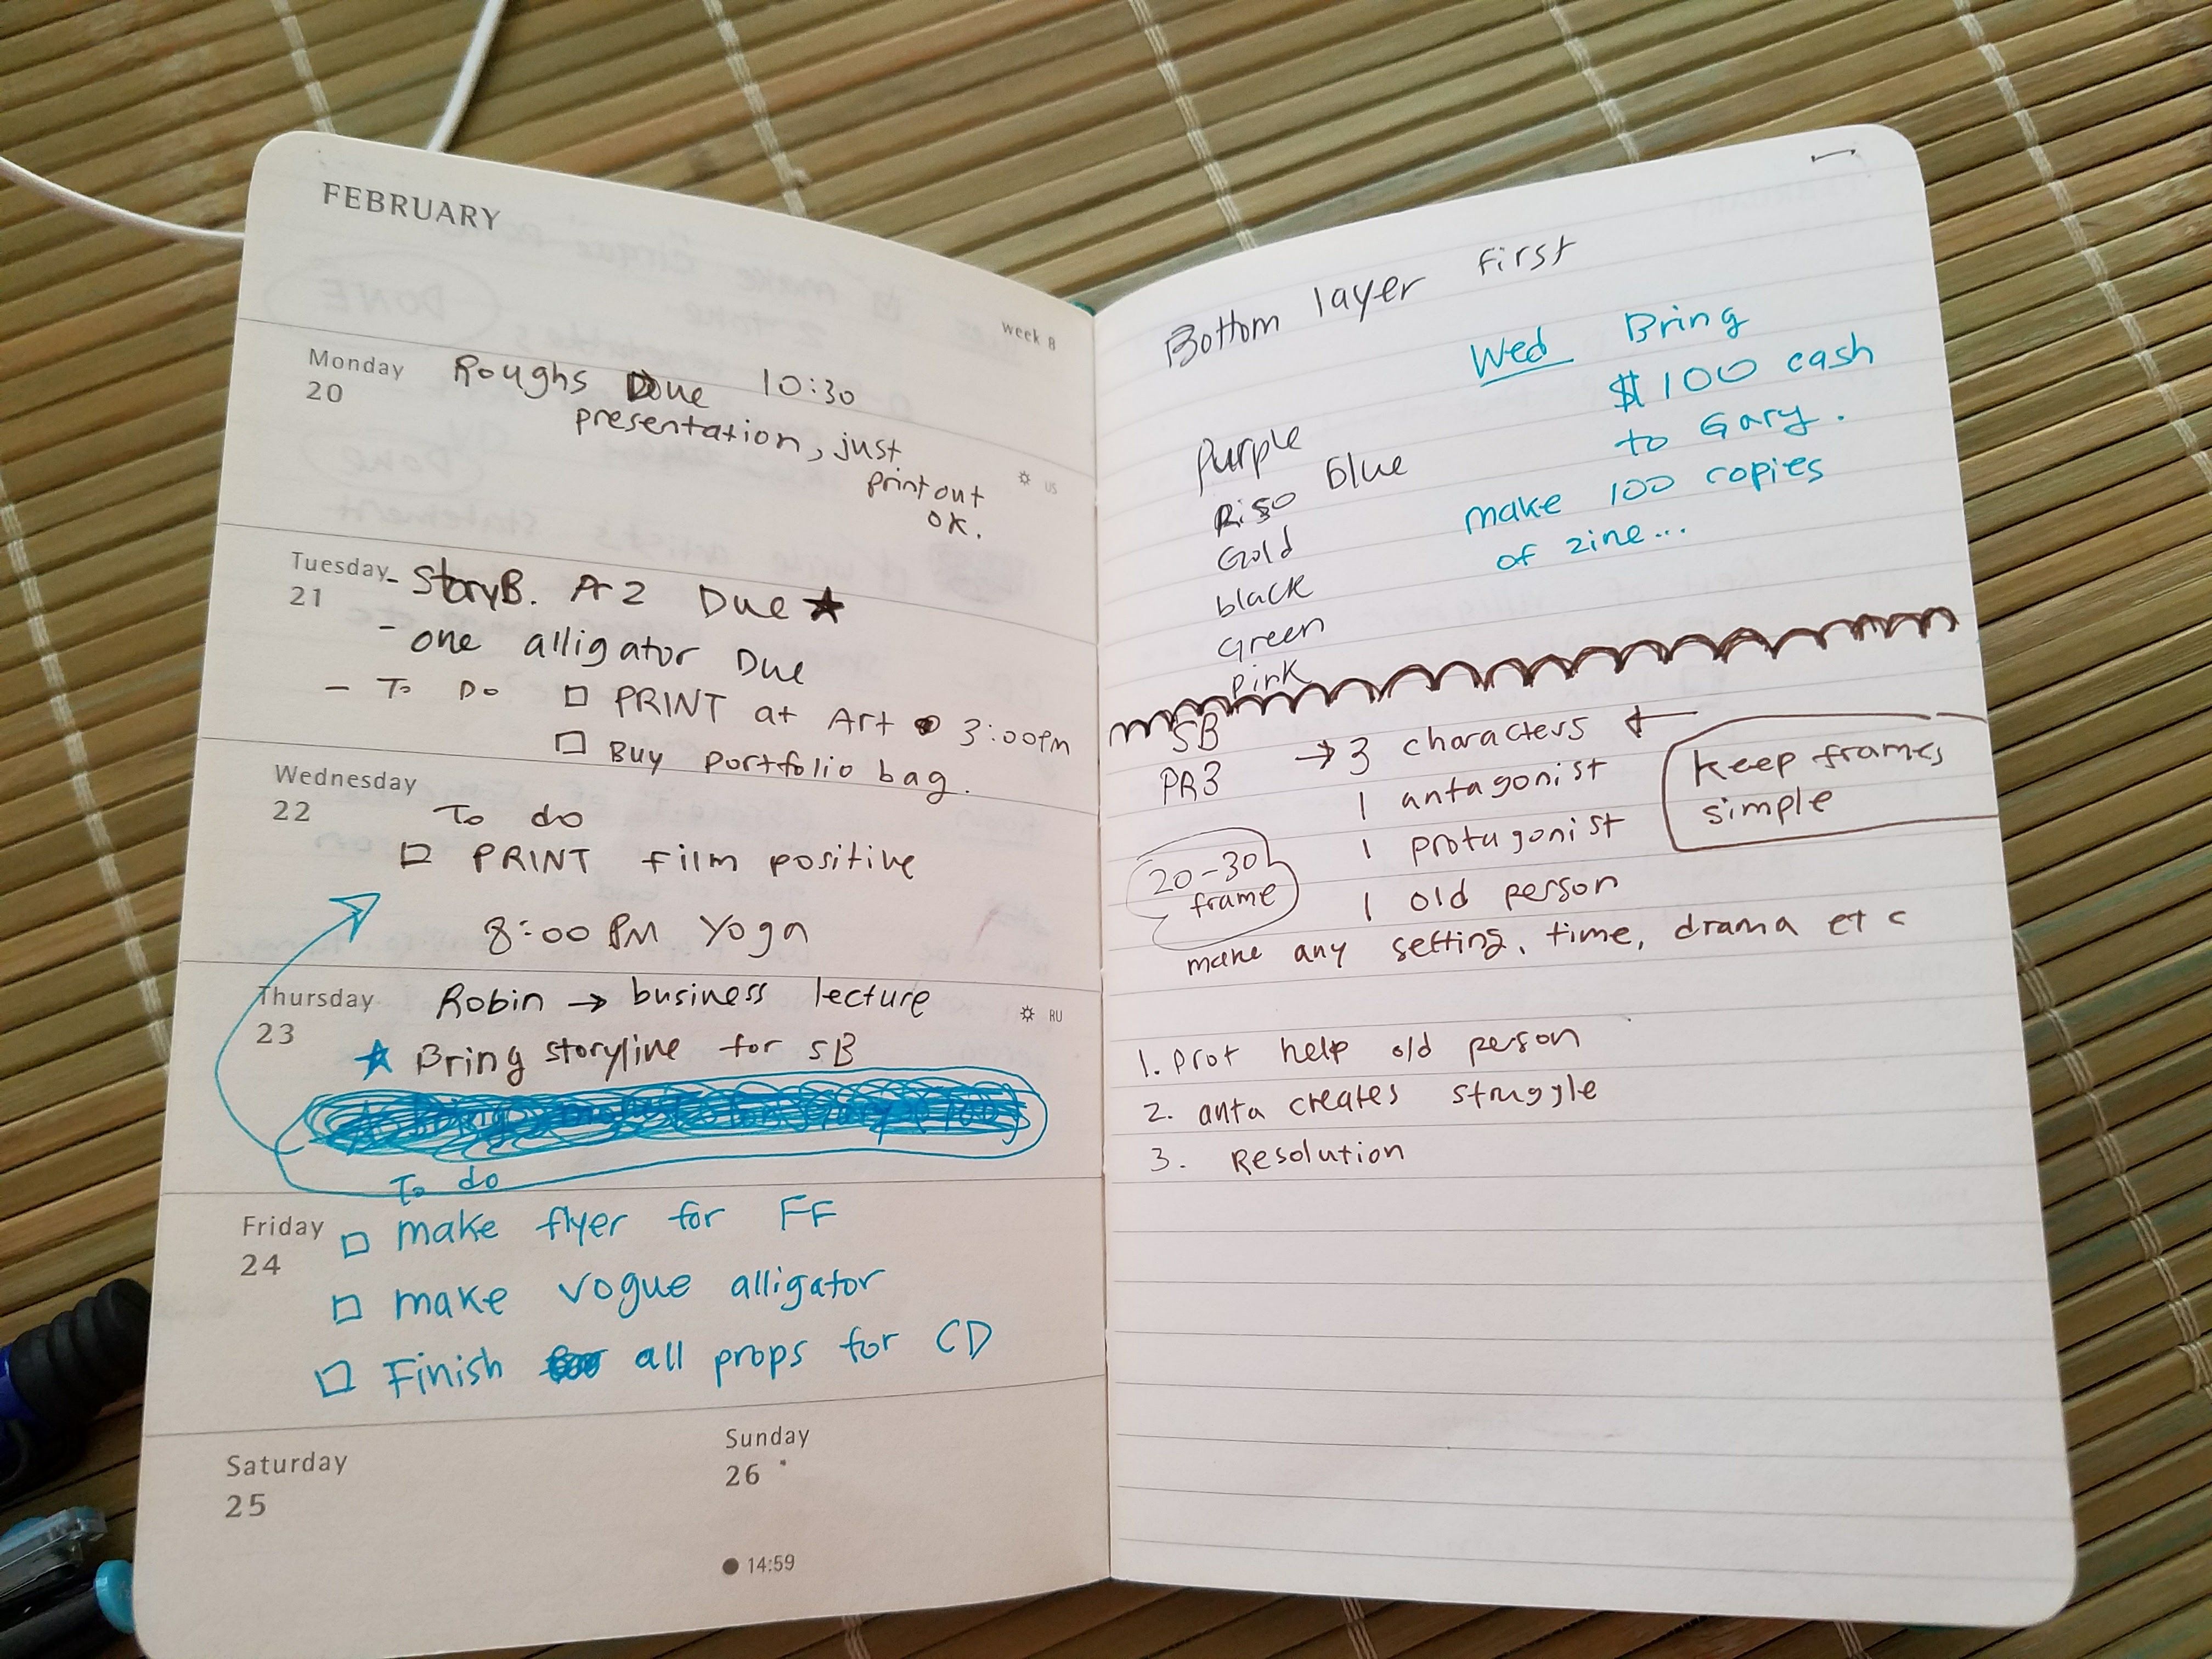 FEBRUARY
week 8
Monday
20
Roughs Due 10:30
presentation, just
print out
ok.
US
Tuesday
21
- StoryB. Ar 2 Due ★
- one alligator Due
- To Do □ PRINT at Art 3:00pm
□ Buy portfolio bag.
Wednesday
22
To do
□ PRINT film positive
8:00 PM Yoga
Thursday
23
Robin → business lecture
RU
★ Bring storyline for SB
To do
Friday
24
□ make flyer for FF
□ make vogue alligator
□ Finish all props for CD
Saturday
25
Sunday
26
● 14:59
Bottom layer first
Wed Bring
$100 cash
to Gary.
make 100 copies
of zine...
Purple
Riso blue
Gold
black
Green
Pink
SB
PR3
→ 3 characters ←
1 antagonist
1 protagonist
1 old person
keep frames
simple
20-30
frame
make any setting, time, drama etc
1. prot help old person
2. anta creates struggle
3. Resolution